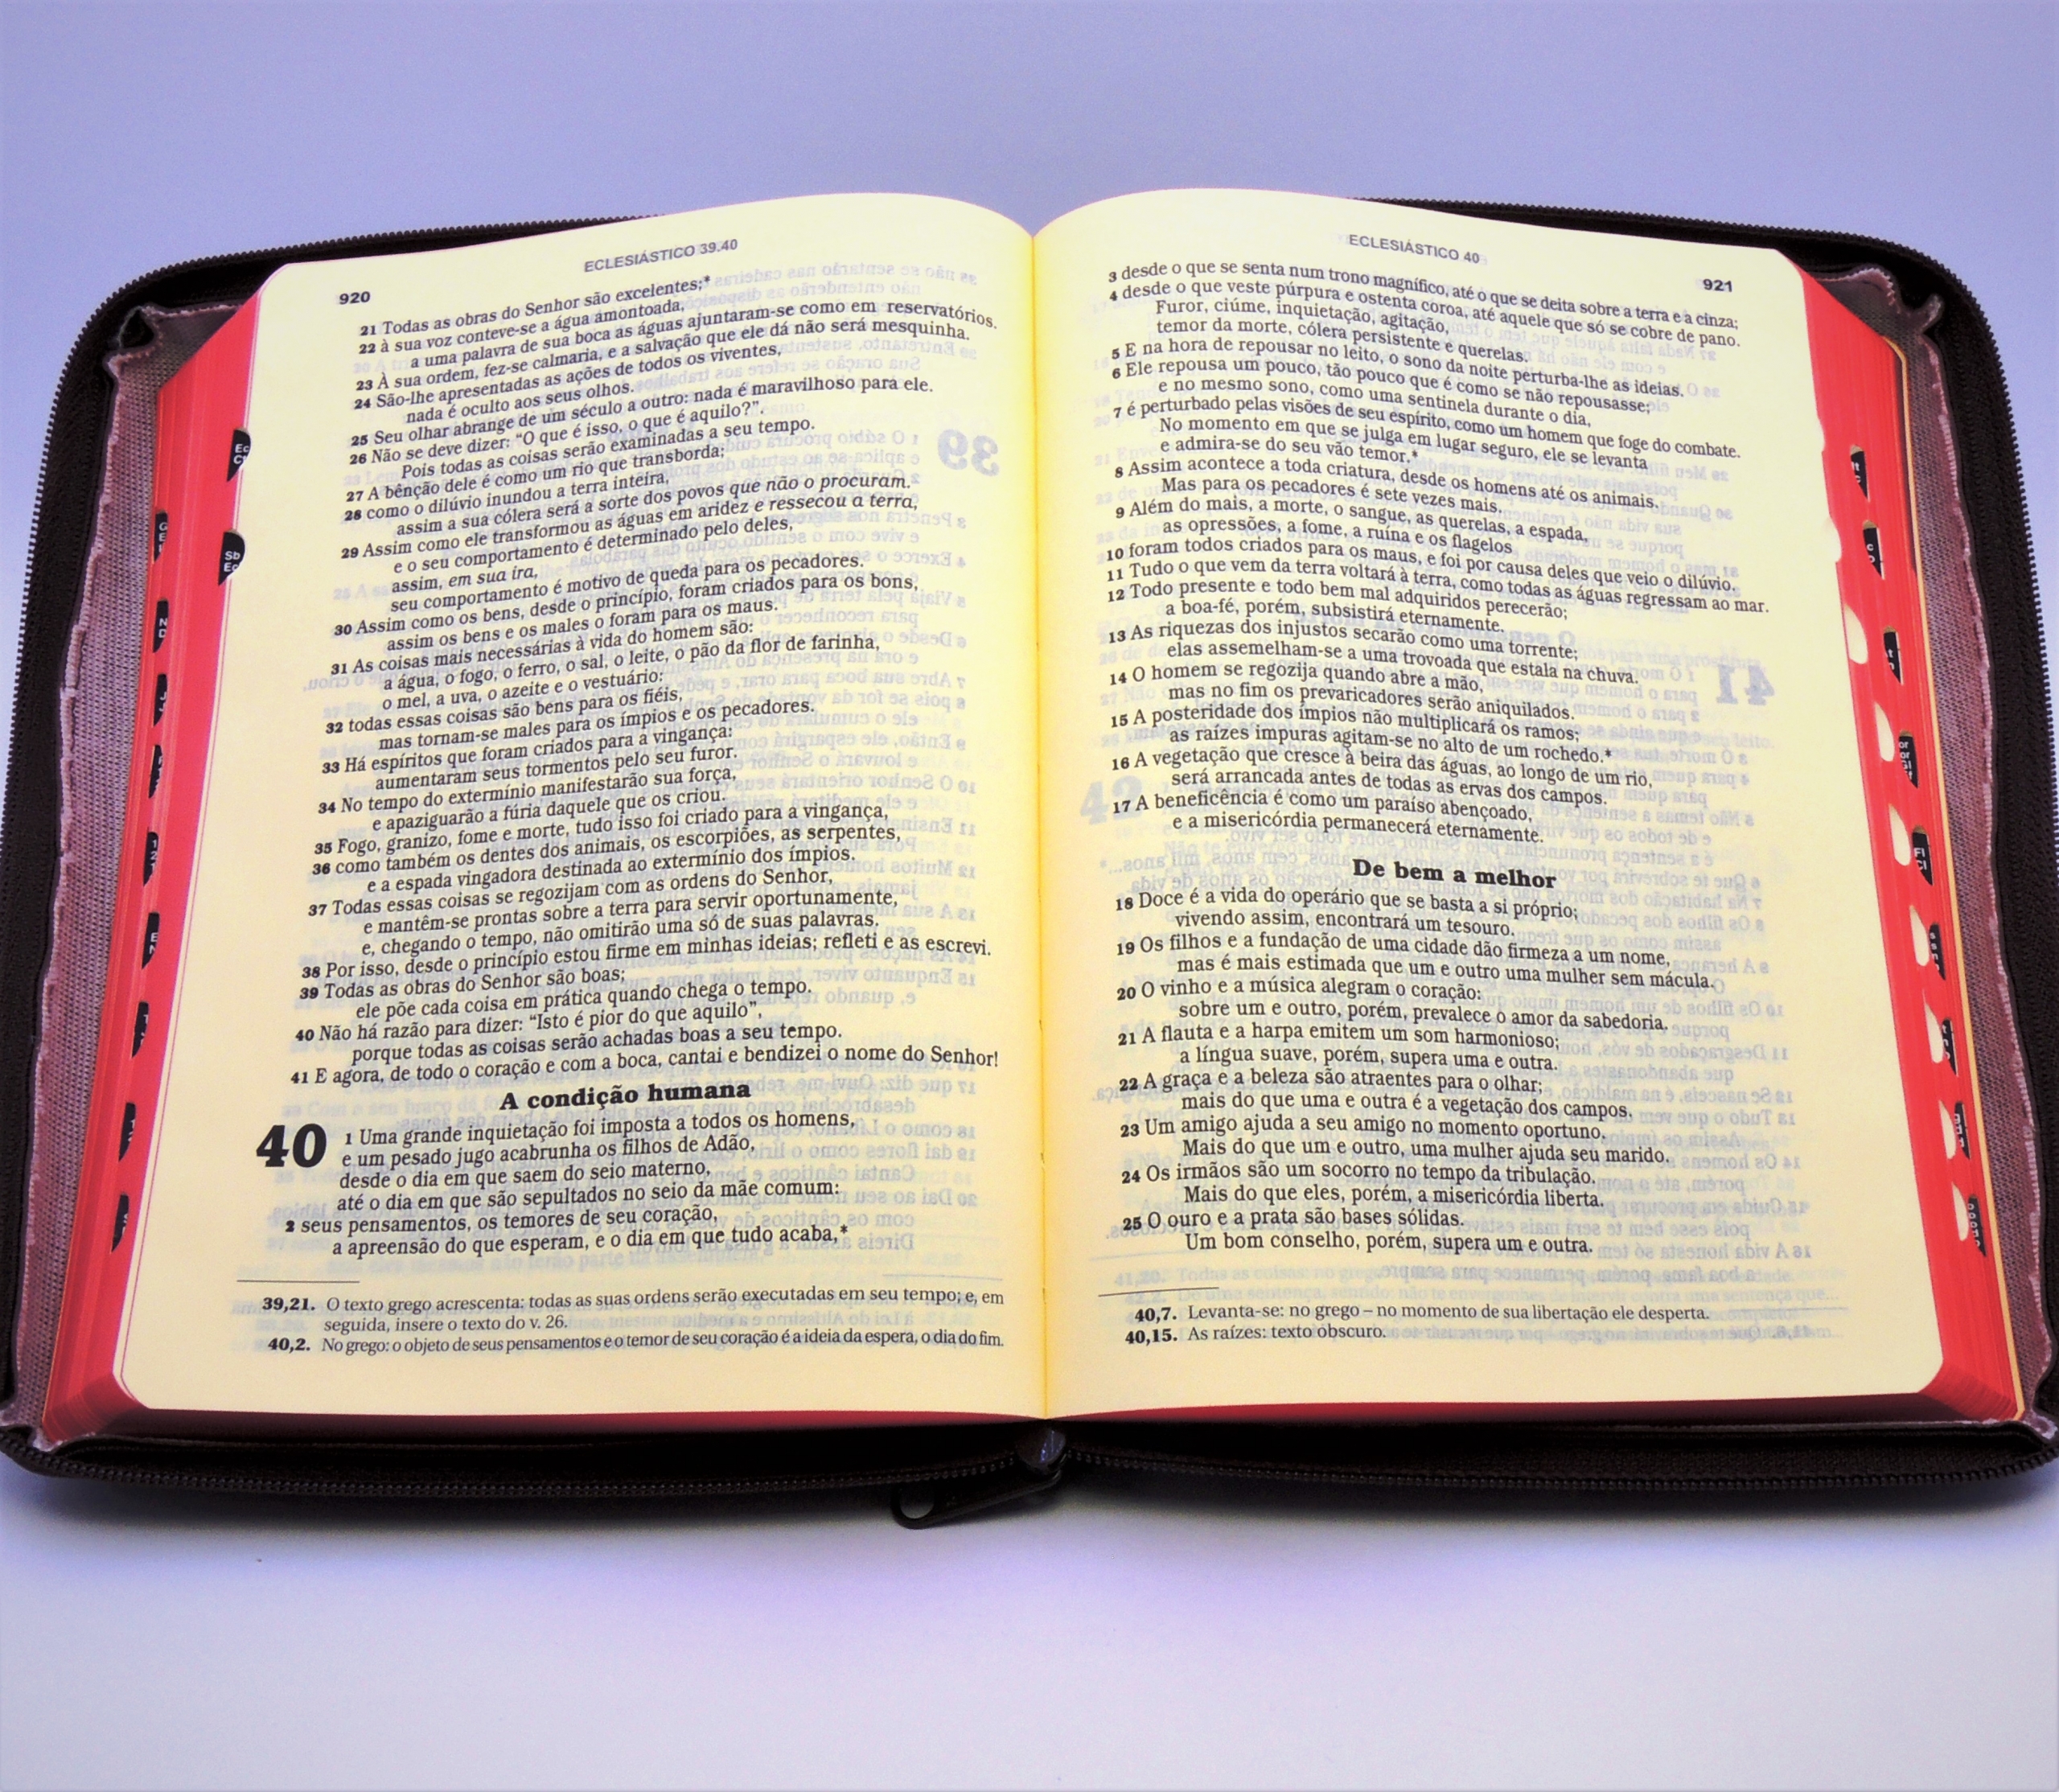 ECLESIÁSTICO 39.40
920
21 Todas as obras do Senhor são excelentes;*
22 à sua voz conteve-se a água amontoada,
a uma palavra de sua boca as águas ajuntaram-se como em reservatórios.
23 À sua ordem, fez-se calmaria, e a salvação que ele dá não será mesquinha.
24 São-lhe apresentadas as ações de todos os viventes,
nada é oculto aos seus olhos.
25 Seu olhar abrange de um século a outro: nada é maravilhoso para ele.
26 Não se deve dizer: “O que é isso, o que é aquilo?”.
Pois todas as coisas serão examinadas a seu tempo.
27 A bênção dele é como um rio que transborda;
28 como o dilúvio inundou a terra inteira,
assim a sua cólera será a sorte dos povos que não o procuram.
29 Assim como ele transformou as águas em aridez e ressecou a terra,
e o seu comportamento é determinado pelo deles,
assim, em sua ira,
seu comportamento é motivo de queda para os pecadores.
30 Assim como os bens, desde o princípio, foram criados para os bons,
assim os bens e os males o foram para os maus.
31 As coisas mais necessárias à vida do homem são:
a água, o fogo, o ferro, o sal, o leite, o pão da flor de farinha,
o mel, a uva, o azeite e o vestuário:
32 todas essas coisas são bens para os fiéis,
mas tornam-se males para os ímpios e os pecadores.
33 Há espíritos que foram criados para a vingança:
aumentaram seus tormentos pelo seu furor.
34 No tempo do extermínio manifestarão sua força,
e apaziguarão a fúria daquele que os criou.
35 Fogo, granizo, fome e morte, tudo isso foi criado para a vingança,
36 como também os dentes dos animais, os escorpiões, as serpentes,
e a espada vingadora destinada ao extermínio dos ímpios.
37 Todas essas coisas se regozijam com as ordens do Senhor,
e mantêm-se prontas sobre a terra para servir oportunamente,
e, chegando o tempo, não omitirão uma só de suas palavras.
38 Por isso, desde o princípio estou firme em minhas ideias; refleti e as escrevi.
39 Todas as obras do Senhor são boas;
ele põe cada coisa em prática quando chega o tempo.
40 Não há razão para dizer: “Isto é pior do que aquilo”,
porque todas as coisas serão achadas boas a seu tempo.
41 E agora, de todo o coração e com a boca, cantai e bendizei o nome do Senhor!
A condição humana
40 1 Uma grande inquietação foi imposta a todos os homens,
e um pesado jugo acabrunha os filhos de Adão,
desde o dia em que saem do seio materno,
até o dia em que são sepultados no seio da mãe comum:
2 seus pensamentos, os temores de seu coração,
a apreensão do que esperam, e o dia em que tudo acaba,*
39,21. O texto grego acrescenta: todas as suas ordens serão executadas em seu tempo; e, em
seguida, insere o texto do v. 26.
40,2. No grego: o objeto de seus pensamentos e o temor de seu coração é a ideia da espera, o dia do fim.
ECLESIÁSTICO 40
921
3 desde o que se senta num trono magnífico, até o que se deita sobre a terra e a cinza;
4 desde o que veste púrpura e ostenta coroa, até aquele que só se cobre de pano.
Furor, ciúme, inquietação, agitação,
temor da morte, cólera persistente e querelas.
5 E na hora de repousar no leito, o sono da noite perturba-lhe as ideias.
6 Ele repousa um pouco, tão pouco que é como se não repousasse;
e no mesmo sono, como uma sentinela durante o dia,
7 é perturbado pelas visões de seu espírito, como um homem que foge do combate.
No momento em que se julga em lugar seguro, ele se levanta
e admira-se do seu vão temor.*
8 Assim acontece a toda criatura, desde os homens até os animais.
Mas para os pecadores é sete vezes mais.
9 Além do mais, a morte, o sangue, as querelas, a espada,
as opressões, a fome, a ruína e os flagelos
10 foram todos criados para os maus, e foi por causa deles que veio o dilúvio.
11 Tudo o que vem da terra voltará à terra, como todas as águas regressam ao mar.
12 Todo presente e todo bem mal adquiridos perecerão;
a boa-fé, porém, subsistirá eternamente.
13 As riquezas dos injustos secarão como uma torrente;
elas assemelham-se a uma trovoada que estala na chuva.
14 O homem se regozija quando abre a mão,
mas no fim os prevaricadores serão aniquilados.
15 A posteridade dos ímpios não multiplicará os ramos;
as raízes impuras agitam-se no alto de um rochedo.*
16 A vegetação que cresce à beira das águas, ao longo de um rio,
será arrancada antes de todas as ervas dos campos.
17 A beneficência é como um paraíso abençoado,
e a misericórdia permanecerá eternamente.
De bem a melhor
18 Doce é a vida do operário que se basta a si próprio;
vivendo assim, encontrará um tesouro.
19 Os filhos e a fundação de uma cidade dão firmeza a um nome,
mas é mais estimada que um e outro uma mulher sem mácula.
20 O vinho e a música alegram o coração:
sobre um e outro, porém, prevalece o amor da sabedoria.
21 A flauta e a harpa emitem um som harmonioso;
a língua suave, porém, supera uma e outra.
22 A graça e a beleza são atraentes para o olhar;
mais do que uma e outra é a vegetação dos campos.
23 Um amigo ajuda a seu amigo no momento oportuno.
Mais do que um e outro, uma mulher ajuda seu marido.
24 Os irmãos são um socorro no tempo da tribulação.
Mais do que eles, porém, a misericórdia liberta.
25 O ouro e a prata são bases sólidas.
Um bom conselho, porém, supera um e outra.
40,7. Levanta-se: no grego – no momento de sua libertação ele desperta.
40,15. As raízes: texto obscuro.